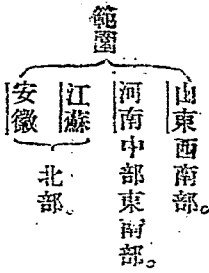 範圍
山東西南部。
河南中部東南部。
江蘇
安徽
北部。